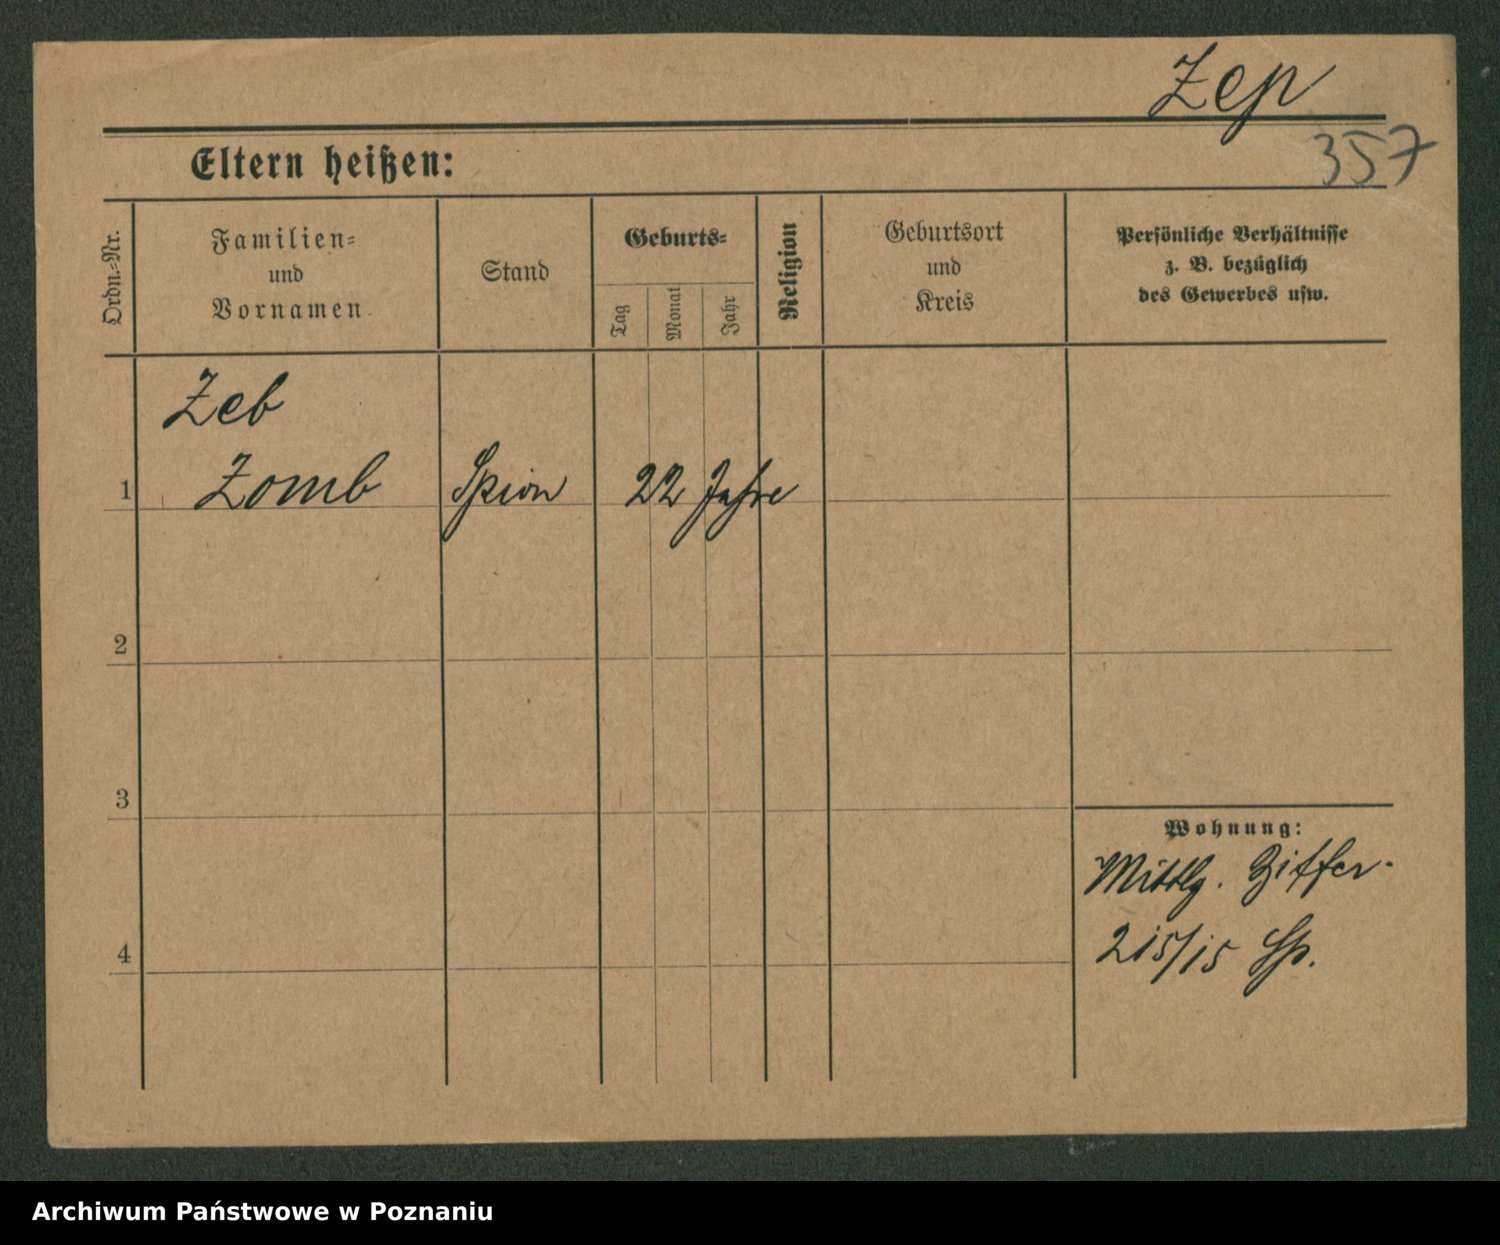 Zep
357
Eltern heißen:
Ordn.-Nr.
Familien-
und
Vornamen
Stand
Geburts-
Tag
Monat
Jahr
Religion
Geburtsort
und
Kreis
Persönliche Verhältnisse
z. B. bezüglich
des Gewerbes usw.
Zeb
1 Zomb Spion 22 Jahre
2
3
4
Wohnung:
Mittlg. Ziffer
215/15 Sp.
Archiwum Państwowe w Poznaniu